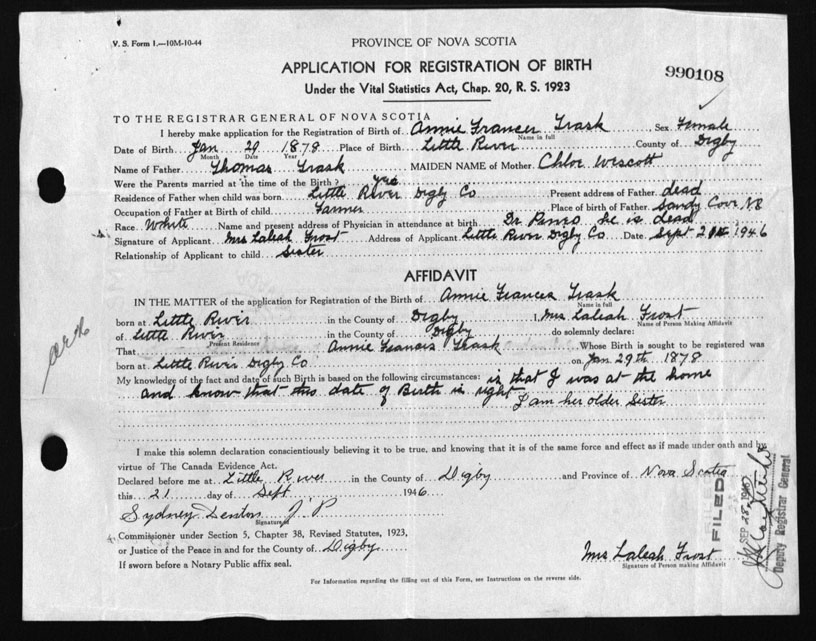 V. S. Form 1.—10M-10-44
PROVINCE OF NOVA SCOTIA
APPLICATION FOR REGISTRATION OF BIRTH
990108
Under the Vital Statistics Act, Chap. 20, R. S. 1923
TO THE REGISTRAR GENERAL OF NOVA SCOTIA
I hereby make application for the Registration of Birth of Annie Frances Trask Sex Female
Name in full
Date of Birth Jan 29 1878 Place of Birth Little River County of Digby
Month Date Year
Name of Father Thomas Trask MAIDEN NAME of Mother Chloe Wescott
Were the Parents married at the time of the Birth? yes
Residence of Father when child was born Little River Digby Co Present address of Father dead
Occupation of Father at Birth of child Farmer Place of birth of Father Sandy Cove NS
Race White Name and present address of Physician in attendance at birth Dr he is dead
Signature of Applicant Mrs Laleah Frost Address of Applicant Little River Digby Co Date Sept 1946
Relationship of Applicant to child Sister
AFFIDAVIT
IN THE MATTER of the application for Registration of the Birth of Annie Frances Trask
Name in full
born at Little River in the County of Digby I, Mrs Laleah Frost
Name of Person Making Affidavit
of Little River in the County of Digby do solemnly declare:
Present Residence
That Annie Francis Trask Whose Birth is sought to be registered was
born at Little River Digby Co on Jan 29th 1878
My knowledge of the fact and date of such Birth is based on the following circumstances: is that I was at the home
and know that this date of Birth is right
I am her older Sister
I make this solemn declaration conscientiously believing it to be true, and knowing that it is of the same force and effect as if made under oath and by
virtue of The Canada Evidence Act.
Declared before me at Little River in the County of Digby and Province of Nova Scotia
this 21 day of Sept 1946
Sydney Denton J P
Signature of
Commissioner under Section 5, Chapter 38, Revised Statutes, 1923,
or Justice of the Peace in and for the County of Digby
If sworn before a Notary Public affix seal.
Mrs Laleah Frost
Signature of Person making Affidavit
For Information regarding the filling out of this Form, see Instructions on the reverse side.
FILED
SEP 28 1946
Deputy Registrar General